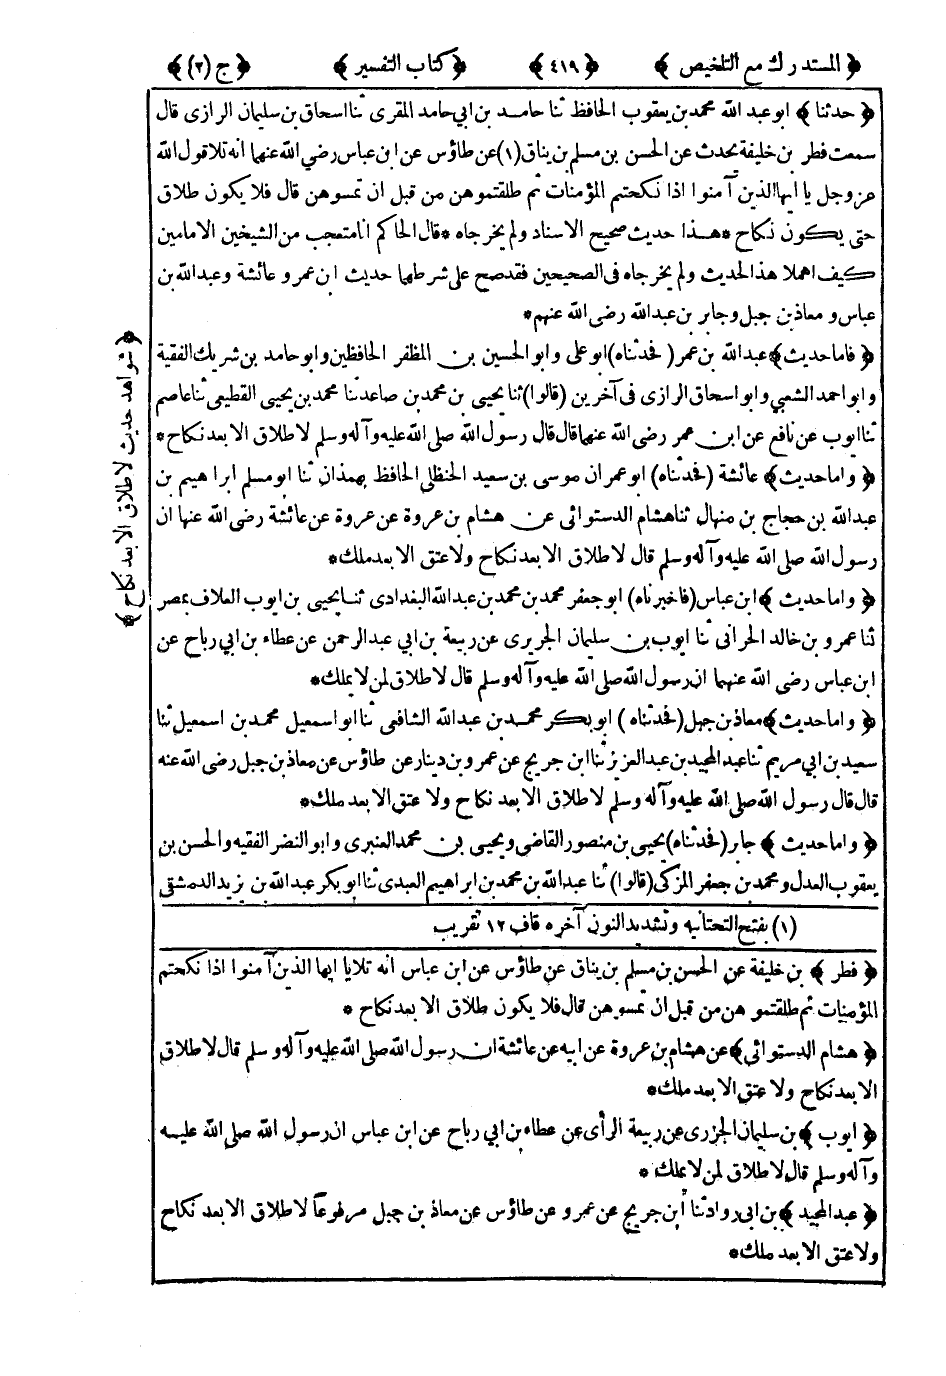 ﴿ المستدرك مع التلخيص ﴾ ﴿ ٤١٩ ﴾ ﴿ كتاب التفسير ﴾ ﴿ ج (٢) ﴾
﴿ حدثنا ﴾ ابو عبد الله محمد بن يعقوب الحافظ ثنا حامد بن ابي حامد المقرى ثنا اسحاق بن سليمان الرازى قال
سمعت فطر بن خليفة يحدث عن الحسن بن مسلم بن يناق (١) عن طاؤس عن ابن عباس رضي الله عنهما انه تلا قول الله
عز وجل يا ايها الذين آمنوا اذا نكحتم المؤمنات ثم طلقتموهن من قبل ان تمسوهن قال فلا يكون طلاق
حتى يكون نكاح * هذا حديث صحيح الاسناد ولم يخرجاه * قال الحاكم انا متعجب من الشيخين الامامين
كيف اهملا هذا الحديث ولم يخرجاه في الصحيحين فقد صح على شرطهما حديث ابن عمر و عائشة وعبد الله بن
عباس و معاذ بن جبل وجابر بن عبد الله رضي الله عنهم *
﴿ فاما حديث ﴾ عبد الله بن عمر ( فحدثناه ) ابو على و ابو الحسين بن المظفر الحافظين و ابو حامد بن شريك الفقية
و ابو احمد الشعبي و ابو اسحاق الرازى فى آخرين (قالوا) ثنا يحيى بن محمد بن صاعد ثنا محمد بن يحيى القطيعي ثنا عاصم
ثنا ايوب عن نافع عن ابن عمر رضي الله عنهما قال قال رسول الله صلى الله عليه وآله وسلم لا طلاق الا بعد نكاح *
﴿ و اما حديث ﴾ عائشة ( فحدثناه ) ابو عمران موسى بن سعيد الحنظلي الحافظ بهمذان ثنا ابو مسلم ابراهيم بن
عبد الله بن حجاج بن منهال ثنا هشام الدستوائى عن هشام بن عروة عن عروة عن عائشة رضي الله عنها ان
رسول الله صلى الله عليه وآله وسلم قال لا طلاق الا بعد نكاح ولا عتق الا بعد ملك *
﴿ و اما حديث ﴾ ابن عباس (فاخبرناه) ابو جعفر محمد بن محمد بن عبد الله البغدادى ثنا يحيى بن ايوب العلاف بمصر
ثنا عمرو بن خالد الحرانى ثنا ايوب بن سليمان الجريرى عن ربيعة بن ابي عبد الرحمن عن عطاء بن ابي رباح عن
ابن عباس رضي الله عنهما ان رسول الله صلى الله عليه وآله وسلم قال لا طلاق لمن لا يملك *
﴿ و اما حديث ﴾ معاذ بن جبل ( فحدثناه ) ابو بكر محمد بن عبد الله الشافعى ثنا ابو اسمعيل محمد بن اسمعيل ثنا
سعيد بن ابي مريم ثنا عبد المجيد بن عبد العزيز ثنا ابن جريج عن عمرو بن دينار عن طاؤس عن معاذ بن جبل رضي الله عنه
قال قال رسول الله صلى الله عليه وآله وسلم لا طلاق الا بعد نكاح ولا عتق الا بعد ملك *
﴿ و اما حديث ﴾ جابر (فحدثناه) يحيى بن منصور القاضي ويحيى بن محمد العنبرى و ابو النضر الفقيه والحسن بن
يعقوب العدل ومحمد بن جعفر المزكى (قالوا) ثنا عبد الله بن محمد بن ابراهيم العبدى ثنا ابو بكر عبد الله بن يزيد الدمشقى
﴿ شواهد حديث لا طلاق الا بعد نكاح ﴾
(١) بفتح التحتانيه وتشديد النون آخره قاف ١٢ تقريب
﴿ فطر ﴾ بن خليفة عن الحسن بن مسلم بن يناق عن طاؤس عن ابن عباس انه تلا يا ايها الذين آمنوا اذا نكحتم
المؤمنات ثم طلقتموهن من قبل ان تمسوهن قال فلا يكون طلاق الا بعد نكاح *
﴿ هشام الدستوائى ﴾ عن هشام بن عروة عن ابيه عن عائشة ان رسول الله صلى الله عليه وآله وسلم قال لا طلاق
الا بعد نكاح ولا عتق الا بعد ملك *
﴿ ايوب ﴾ بن سليمان الجزرى عن ربيعة الرأى عن عطاء بن ابي رباح عن ابن عباس ان رسول الله صلى الله عليه
وآله وسلم قال لا طلاق لمن لا يملك *
﴿ عبد المجيد ﴾ بن ابى رواد ثنا ابن جريج عن عمرو عن طاؤس عن معاذ بن جبل مرفوعاً لا طلاق الا بعد نكاح
ولا عتق الا بعد ملك *